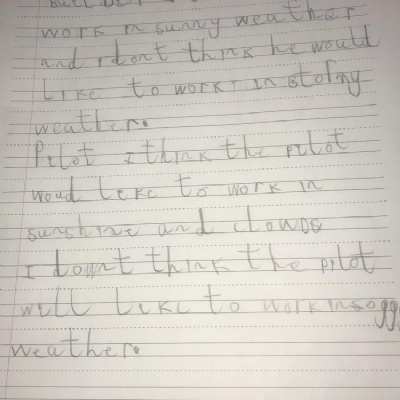 work in sunny weather
and i dont think he would
like to work in stolmy
weather.
Pilot i think the pilot
woud like to work in
sunshine and clowds
I dount think the pilot
will like to work in soggy
weather.